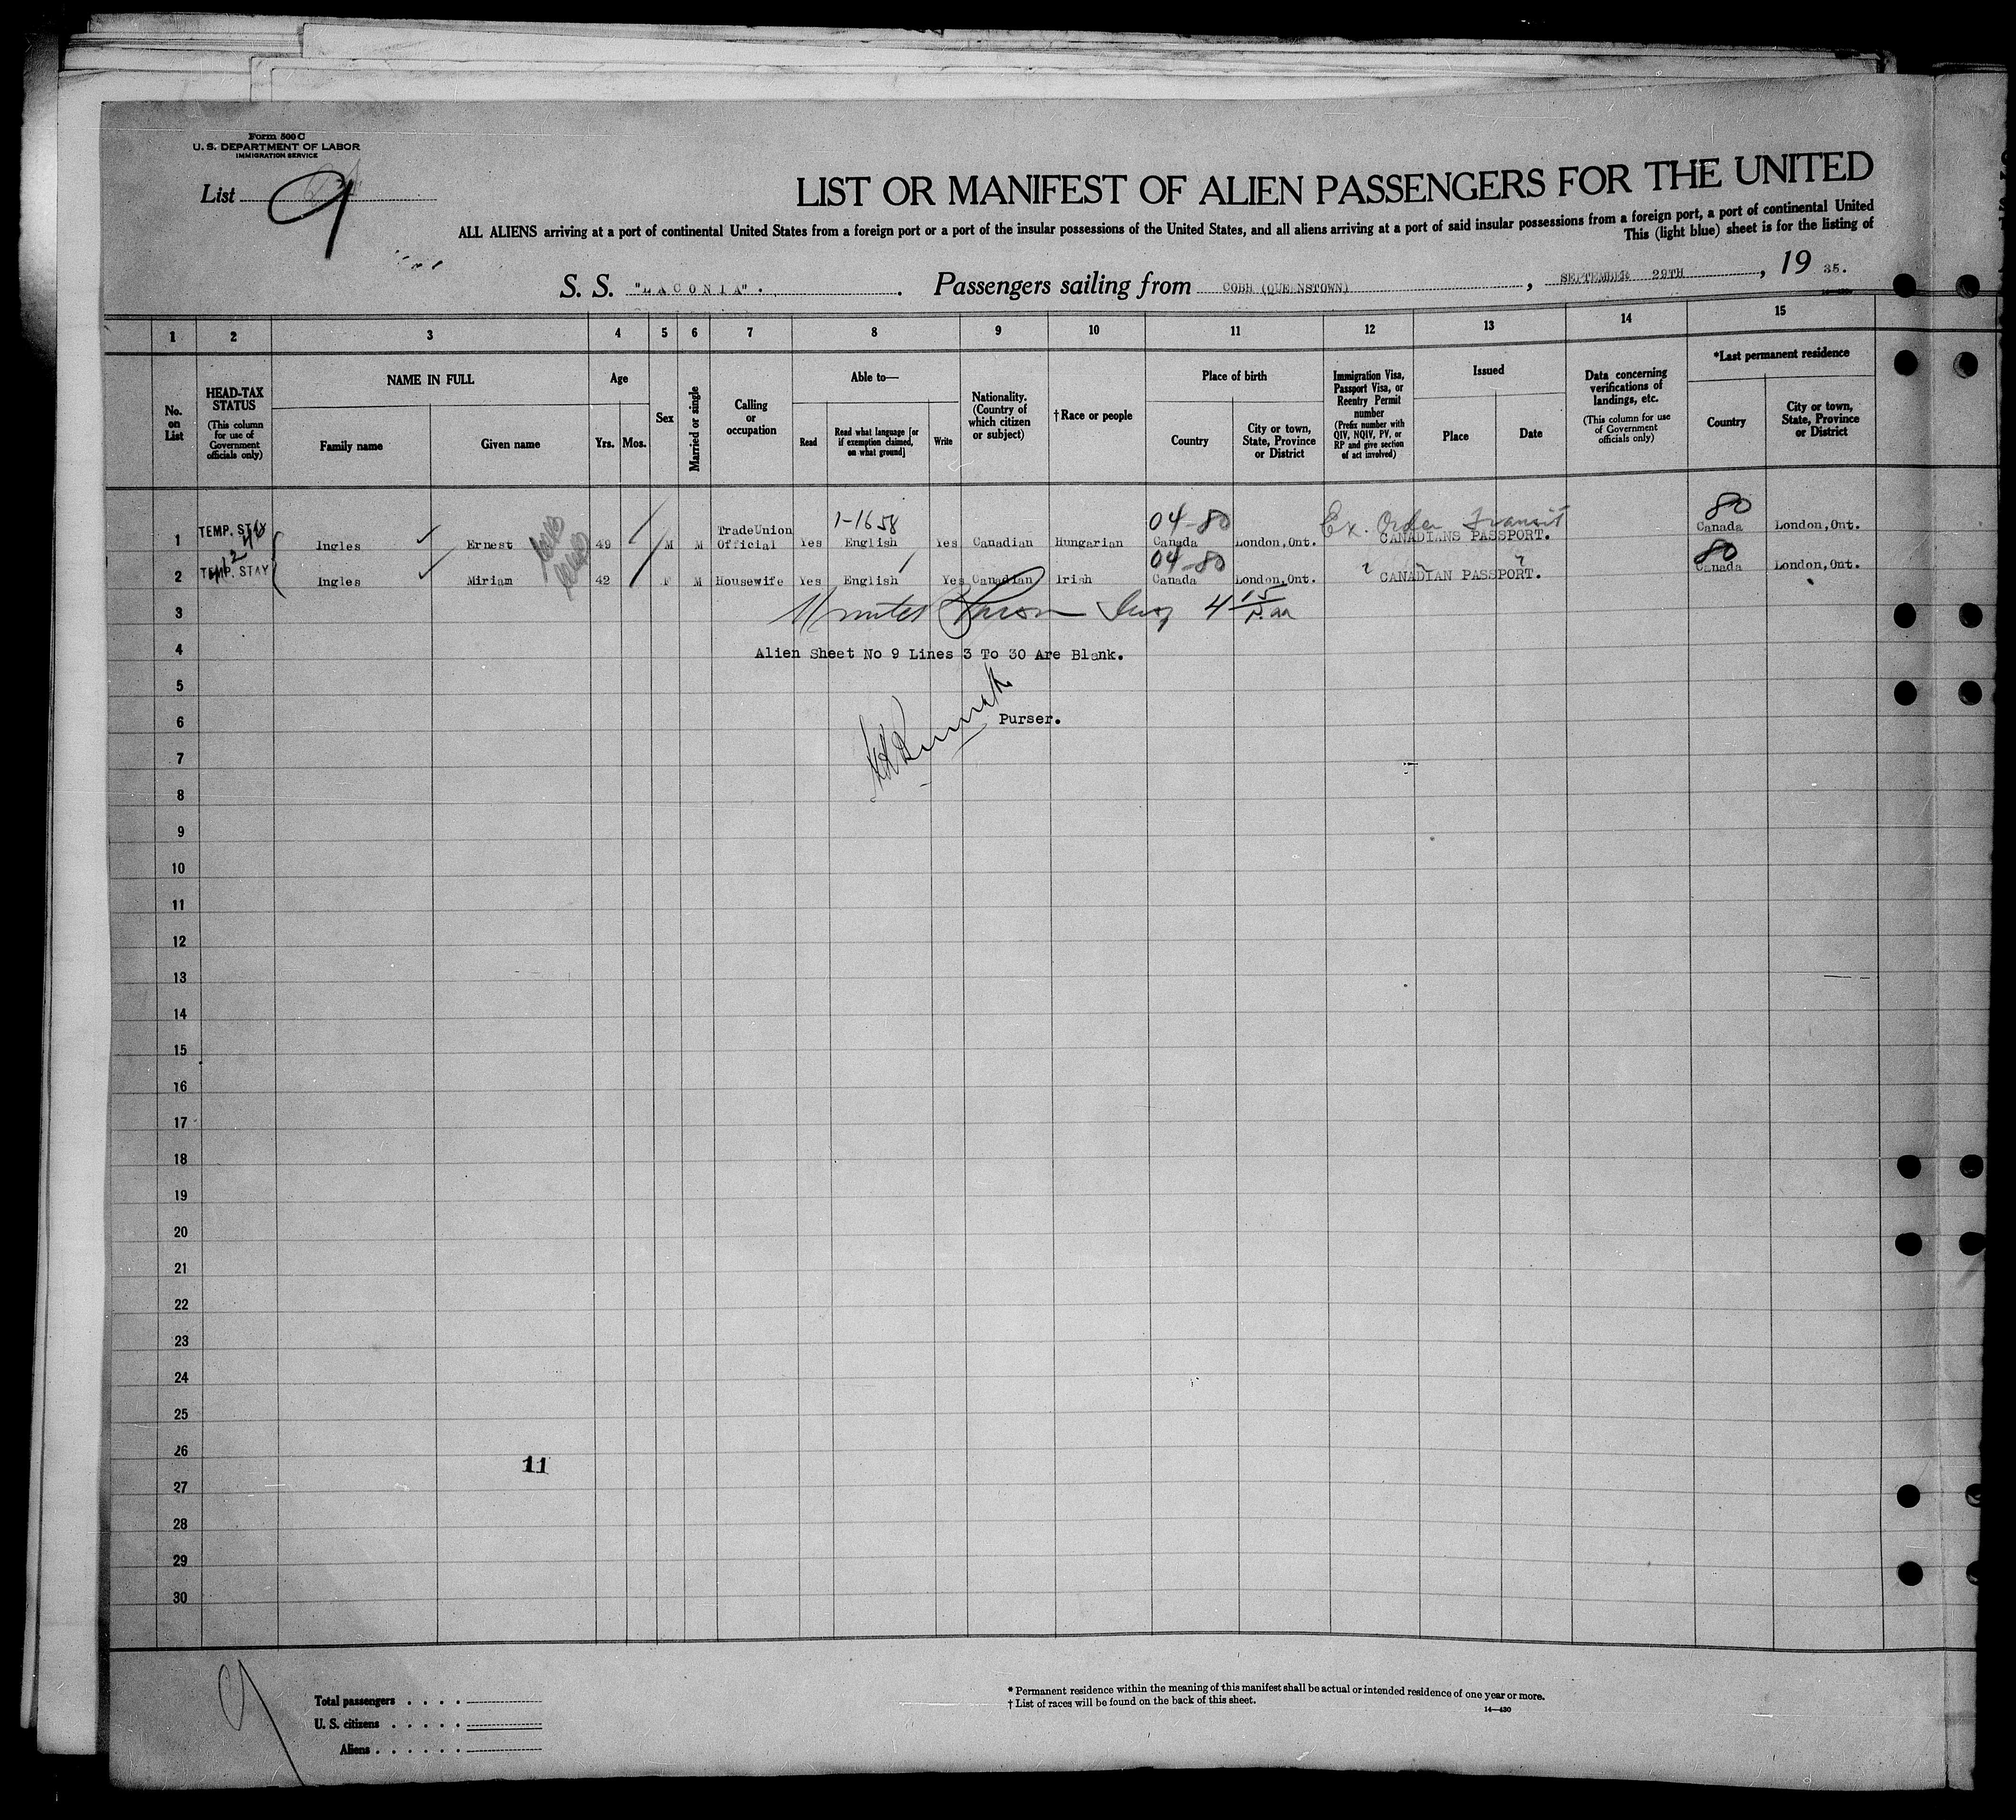 Form 500 C
U. S. DEPARTMENT OF LABOR
IMMIGRATION SERVICE
List 9
LIST OR MANIFEST OF ALIEN PASSENGERS FOR THE UNITED
ALL ALIENS arriving at a port of continental United States from a foreign port or a port of the insular possessions of the United States, and all aliens arriving at a port of said insular possessions from a foreign port, a port of continental United
This (light blue) sheet is for the listing of
S. S. "LACONIA". Passengers sailing from COBH (QUEENSTOWN), SEPTEMBER 29TH, 19 35.
1 2 3 4 5 6 7 8 9 10 11 12 13 14 15
No. on List
HEAD-TAX STATUS (This column for use of Government officials only)
NAME IN FULL
Family name
Given name
Age
Yrs. Mos.
Sex
Married or single
Calling or occupation
Able to—
Read
Read what language [or if exemption claimed, on what ground]
Write
Nationality. (Country of which citizen or subject)
†Race or people
Place of birth
Country
City or town, State, Province or District
Immigration Visa, Passport Visa, or Reentry Permit number (Prefix number with QIV, NQIV, PV, or RP and give section of act involved)
Issued
Place
Date
Data concerning verifications of landings, etc. (This column for use of Government officials only)
*Last permanent residence
Country
City or town, State, Province or District
TEMP. STAY 1-1658 04-80 Ex. Order Transit 80
1 Ingles Ernest 49 M M TradeUnion Official Yes English Yes Canadian Hungarian Canada London,Ont. CANADIANS PASSPORT. Canada London,Ont.
04-80 80
2 TEMP. STAY Ingles Miriam 42 F M Housewife Yes English Yes Canadian Irish Canada London,Ont. CANADIAN PASSPORT. Canada London,Ont.
3
4 Alien Sheet No 9 Lines 3 To 30 Are Blank.
5
6 Purser.
7
8
9
10
11
12
13
14
15
16
17
18
19
20
21
22
23
24
25
26
11
27
28
29
30
9
Total passengers
U. S. citizens
Aliens
* Permanent residence within the meaning of this manifest shall be actual or intended residence of one year or more.
† List of races will be found on the back of this sheet.
14—430